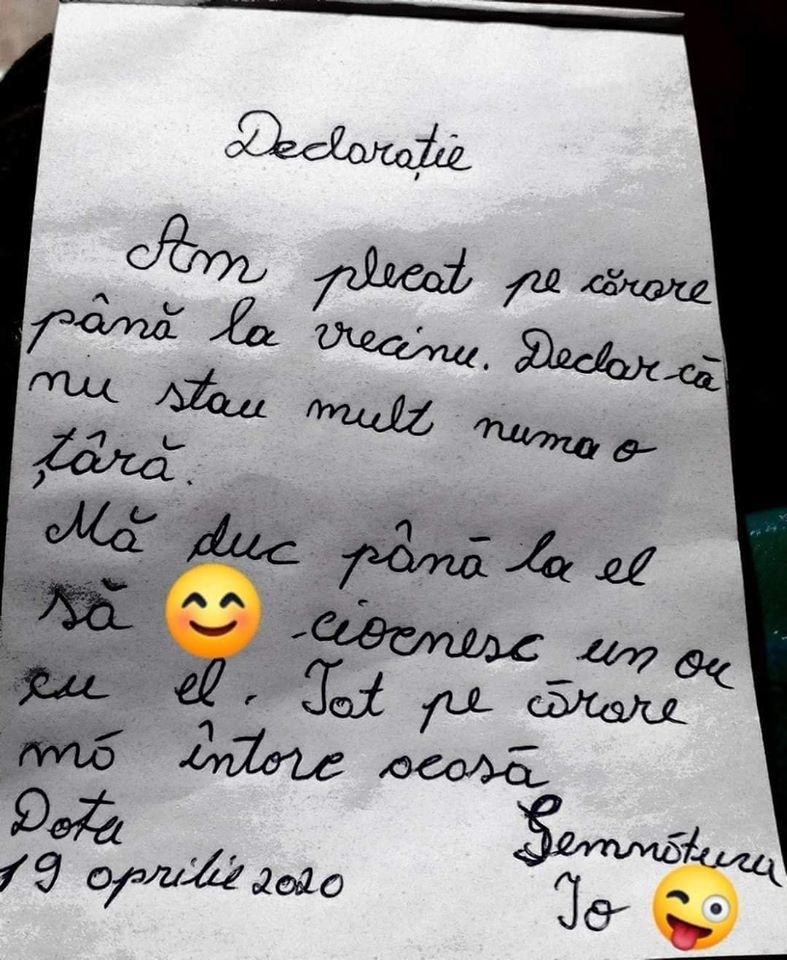 Declarație
Am plecat pe cărare
până la vecinu. Declar că
nu stau mult numa o
țâră.
Mă duc până la el
să 😊 ciocnesc un ou
cu el. Tot pe cărare
mă întorc acasă
Data
Semnătura
19 aprilie 2020
Io 😜